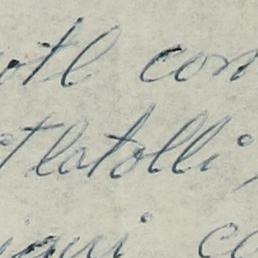 otl con
tlatolli,
iqui co